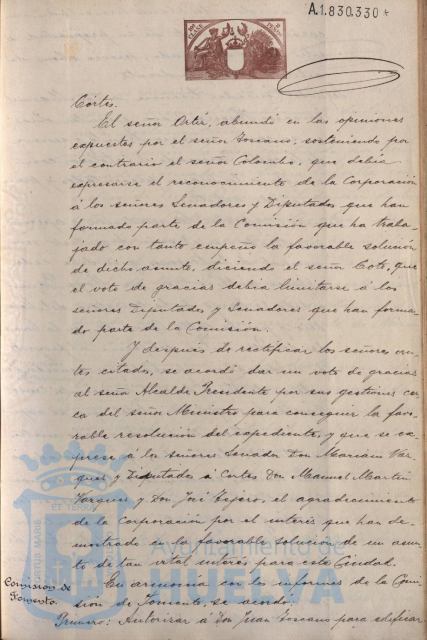 A.1.830.330
Córtes.
El señor Ortiz, abundó en las opiniones
expuestas por el señor Toscano; sosteniendo por
el contrario el señor Colombo, que debia
expresarse el reconocimiento de la Corporación
á los señores Senadores y Diputados que han
formado parte de la Comisión que ha traba-
jado con tanto empeño la favorable solución
de dicho asunto, diciendo el señor Coto, que
el voto de gracias debia limitarse á los
señores Diputados y Senadores que han forma-
do parte de la Comisión.
Y después de rectificar los señores an-
tes citados, se acordó dar un voto de gracias
al señor Alcalde Presidente por sus gestiones cer-
ca del señor Ministro para conseguir la favo-
rable resolución del expediente, y que se ex-
prese á los señores Senador Don Mariano Var-
gas y Diputados á Cortes Don Manuel Martin
Vazquez y Don José Tejero, el agradecimiento
de la Corporación por el interés que han de-
mostrado en la favorable solución de un asun-
to de tan vital interés para esta Ciudad.
Comisión de
Fomento.
En armonía con los informes de la Comi-
sión de Fomento, se acordó:
Primero: Autorizar á Don Juan Toscano para edificar
PORTUS MARIS
ET TERRAE
Ayuntamiento de
HUELVA